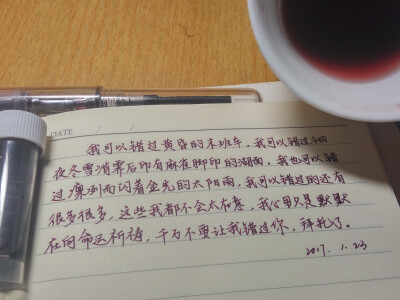 DATE / /
我可以错过黄昏的末班车,我可以错过午明
夜冬雪消霁后印有麻雀脚印的湖面,我也可以错
过凛冽而闪着金光的太阳雨,我可以错过的还有
很多很多,这些我都不会太在意,我心里只是默默
在向命运祈祷,千万不要让我错过你,拜托了。
2017. 1. 23